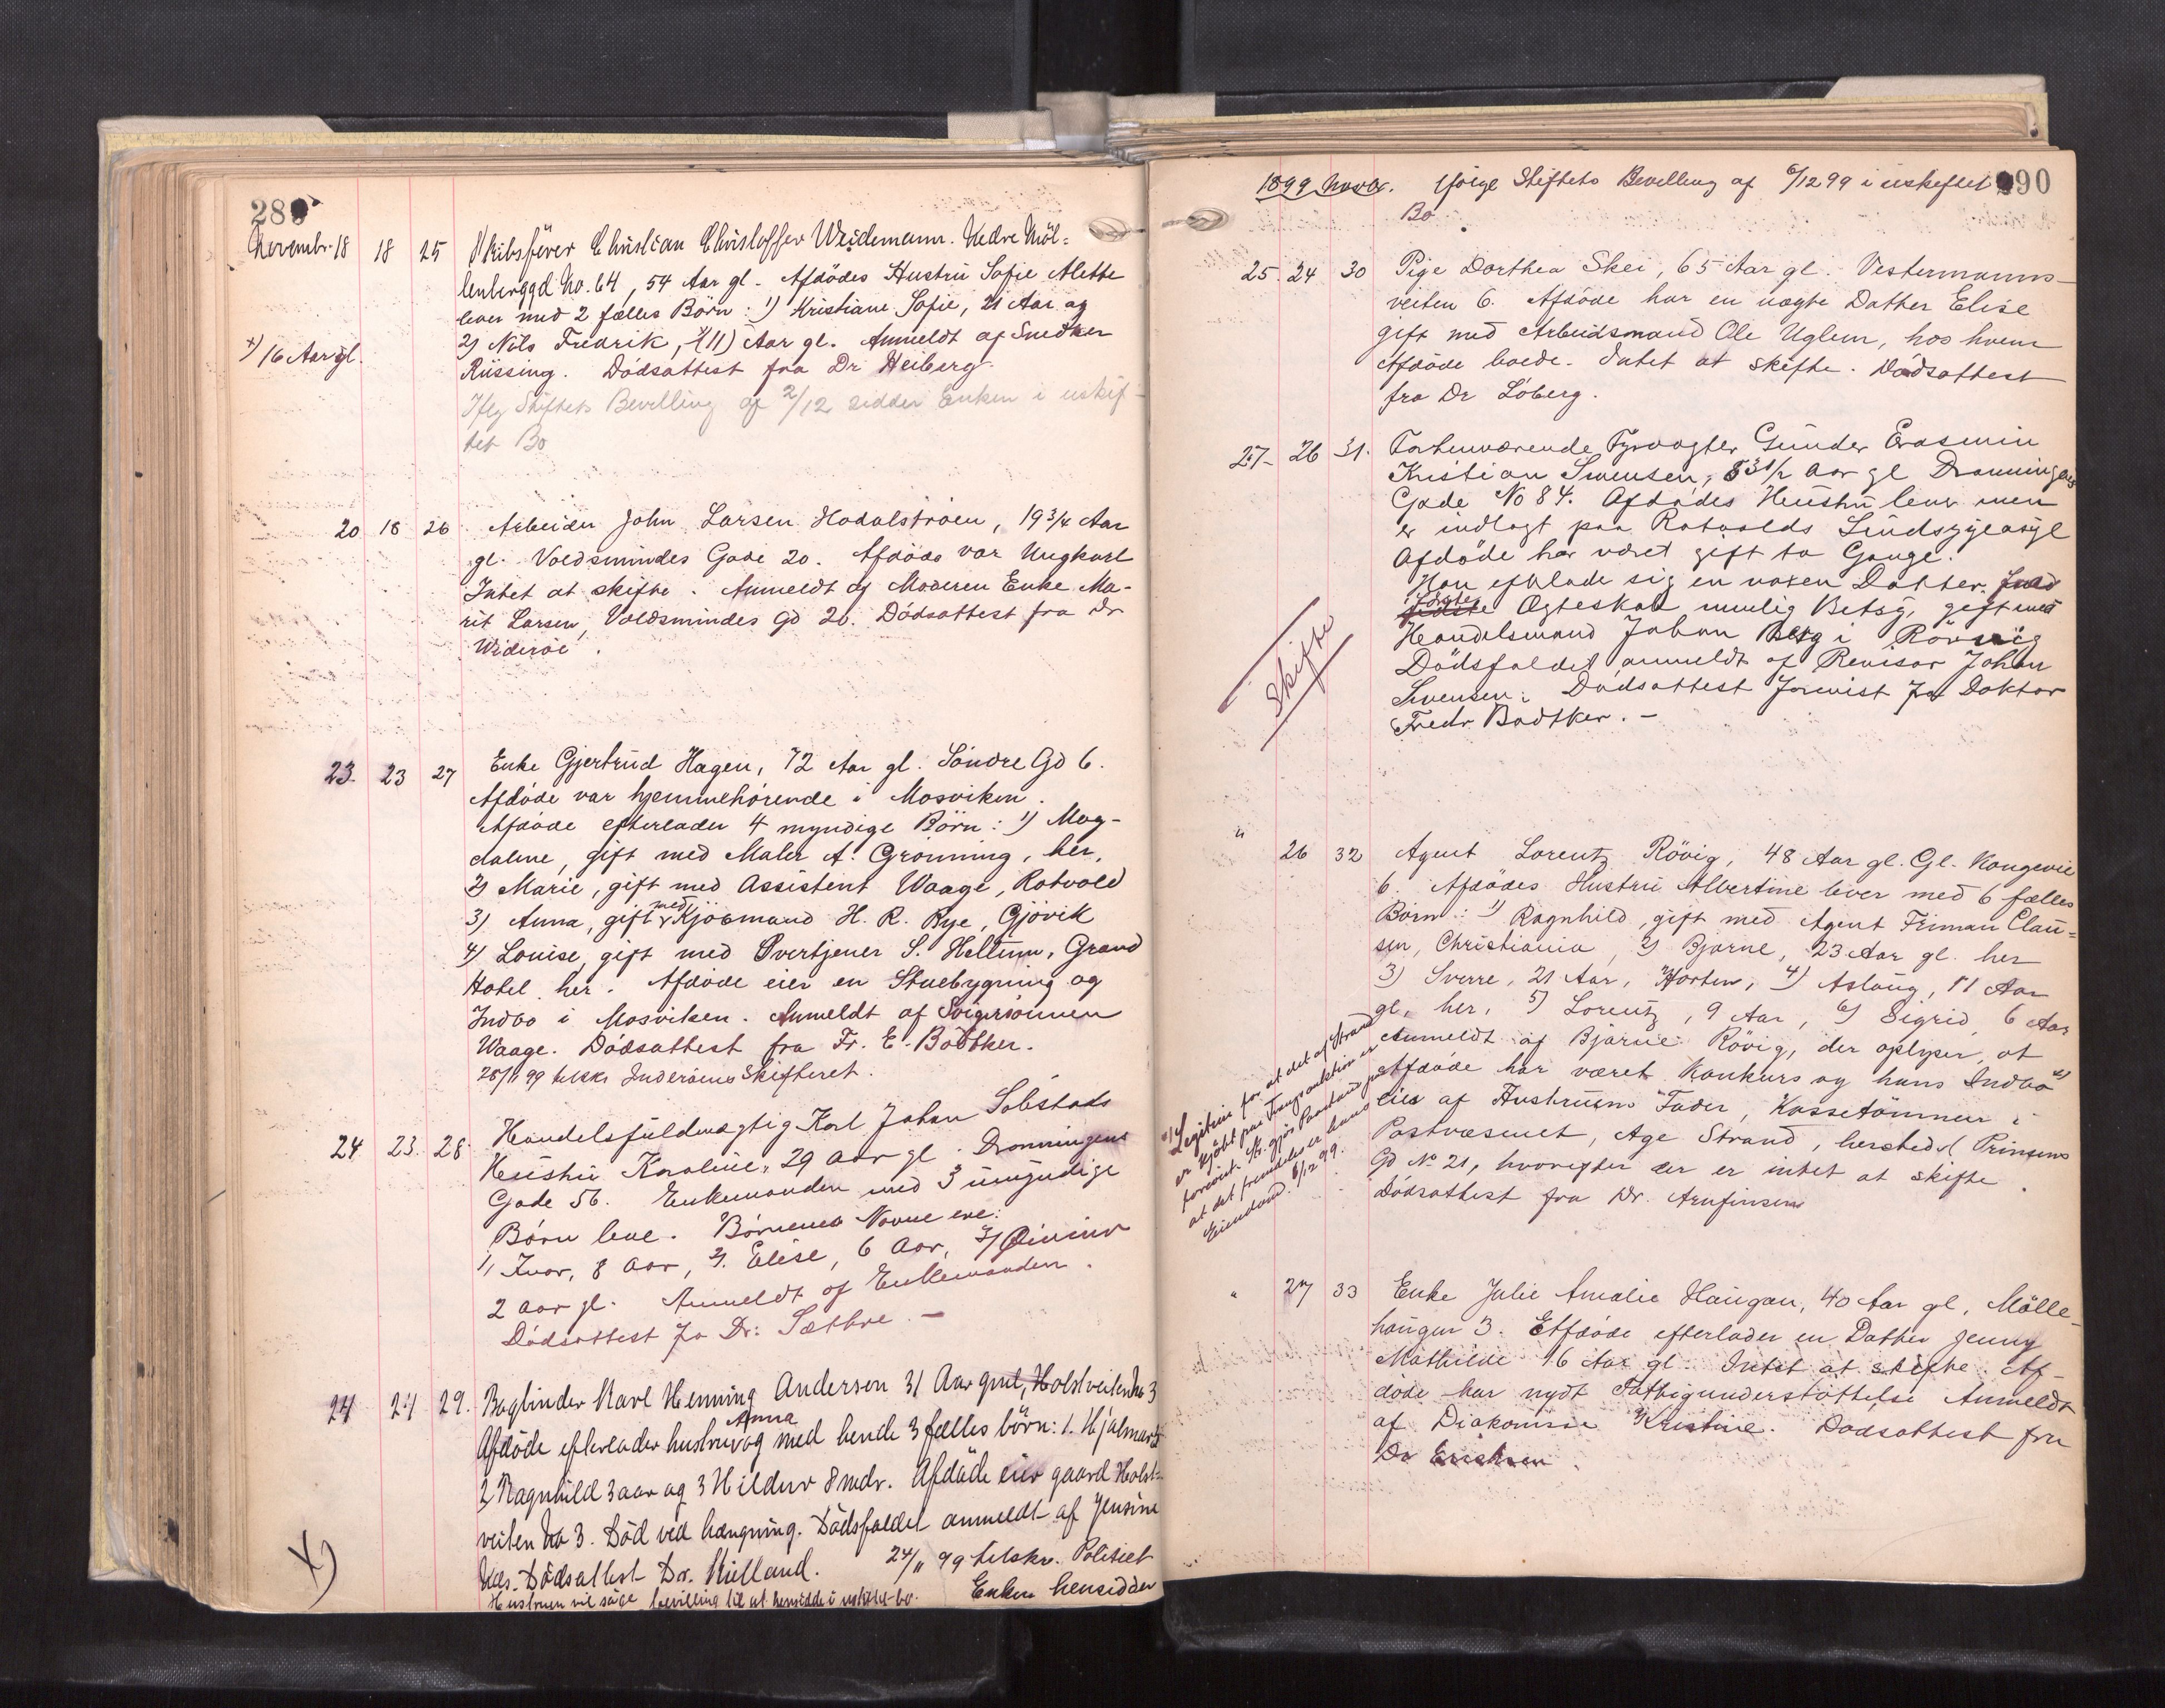 289
Novembr. 18 18 25 Skibsförer Christian Christoffer Weidemann. Nedre Möl=
lenberggd No. 64, 54 Aar gl. Afdödes Hustru Sofie Alette
lever med 2 fælles Börn: 1) Kristiane Sofie, 21 Aar og
2) Nils Fredrik, x) (11) Aar gl. Anmeldt af Snedker
x) 16 Aar gl.
Rüssing. Dödsattest fra Dr Heiberg
Iflg Stiftets Bevilling af 2/12 sidder Enken i uskif-
tet Bo
20 18 26 Arbeider John Larsen Hodalströen, 19 3/4 Aar
gl. Voldsmindes Gade 20. Afdöde var Ungkarl
Intet at skifte. Anmeldt af Moderen Enke Ma-
rit Larsen, Voldsmindes Gd 20. Dödsattest fra Dr
Wideröe.
23. 23 27 Enke Gjertrud Hagen, 72 Aar gl. Söndre Gd 6.
Afdöde var hjemmehörende i Mosviken.
Afdöde efterlader 4 myndige Börn: 1) Mag-
dalene, gift med Maler A. Grönning, her,
2) Marie, gift med Assistent Waage, Rotvold
3) Anna, gift med Kjöbmand H. R. Rye, Gjövik
4) Louise, gift med Overtjener S. Heltum, Grand
Hotel her. Afdöde eier en Stuebygning og
Indbo i Mosviken. Anmeldt af Svigersönnen
Waage. Dödsattest fra Fr. E. Bödtker.
28/11 99 tilskr Inderöens Skifteret.
24 23. 28. Handelsfuldmægtig Karl Johan Solstads
Hustru Karoline, 29 Aar gl. Dronningens
Gade 56. Enkemanden med 3 umyndige
Börn leve. Börnenes Navne ere:
1, Ivar, 8 Aar, 2. Elise, 6 Aar, 3/ Öivind
2 Aar gl. Anmeldt af Enkemanden.
Dödsattest fra Dr: Sæthre. —
24 24 29. Bogbinder Karl Henning Anderson 31 Aar gml, Holstveiten No 3
Afdöde efterlader hustru Anna og med hende 3 fælles börn: 1. Hjalmar 5
2, Ragnhild 3 aar og 3 Hildur 8 mdr. Afdöde eier gaard Holst-
veiten No 3. Död ved hængning. Dödsfaldet anmeldt af Jensine
Næs. Dödsattest Dr. Kielland. 24/11 99 tilskr. Politiet
x)
Hustruen vil söge bevilling til at hensidde i uskiftet bo. Enken hensidder
1899 Novbr. ifölge Stiftets Bevilling af 6/12 99 i uskiftet 290
Bo
25. 24 30 Pige Dorthea Skei, 65 Aar gl. Vestermanns-
veiten 6. Afdöde har en uægte Datter Elise
gift med Arbeidsmand Ole Uglem, hos hvem
Afdöde boede. Intet at skifte. Dödsattest
fra Dr Löberg.
27- 26 31. Forhenværende Fyrvogter Gunder Erasmin
Kristian Svensen, 83 1/2 Aar gl Dronningens
Gade No 84. Afdödes Hustru lever men
er indlagt paa Rotvolds Sindsygeasyl
Afdöde har været gift to Gange.
Han efterlade sig en voxen Datter.
förste Ægteskab nemlig Betsy, gift med
Handelsmand Johan Berg i Rörvig
Skifte
Dödsfaldet anmeldt af Revisor Johan
Svensen. Dödsattest forevist fra Doktor
Fredr Bödtker. —
" 26 32 Agent Lorentz Rövig, 48 Aar gl. Gl. Kongevei
6. Afdödes Hustru Albertine lever med 6 fælles
Börn: 1) Ragnhild, gift med Agent Friman Clau=
sen, Christiania, 2) Bjarne, 23 Aar gl. her
3) Sverre, 21 Aar, Horten, 4) Aslaug, 11 Aar
gl, her, 5) Lorentz, 9 Aar, 6) Sigrid, 6 Aar
Anmeldt af Bjarne Rövig, der oplyser, at
Afdöde har været Konkurs og hans Indbo x)
eies af Hustruens Fader, Kasserer i
Postvæsenet, Age Strand, herstedd Prinsens
Gd No 21, hvorefter der er intet at skifte.
Dödsattest fra Dr. Arnfinsen
x) Legitim for at det af Strand
er kjöbt paa Tvangsauktion er
forevist.
at det fremdeles er hans
Eiendom. 6/12 99.
" 27 33 Enke Julie Amalie Haugan, 40 Aar gl, Mölle-
haugen 3. Afdöde efterlader en Datter Jenny
Mathilde 16 Aar gl. Intet at skifte. Af-
döde har nydt Fattigunderstöttelse Anmeldt
af Diakonisse Kristine. Dödsattest fra
Dr Erichsen.